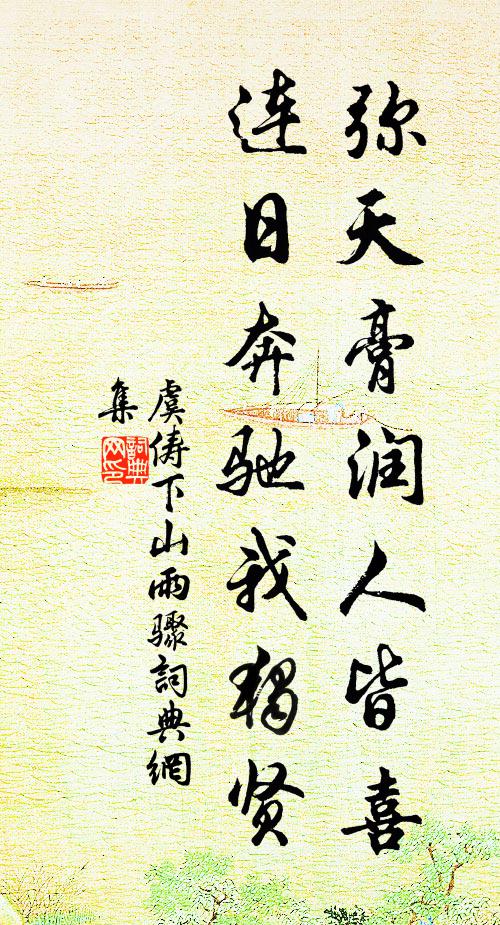 弥天膏润人皆喜
连日奔驰我独贤
虞俦下山雨骤詞典網
集
詞典
网印